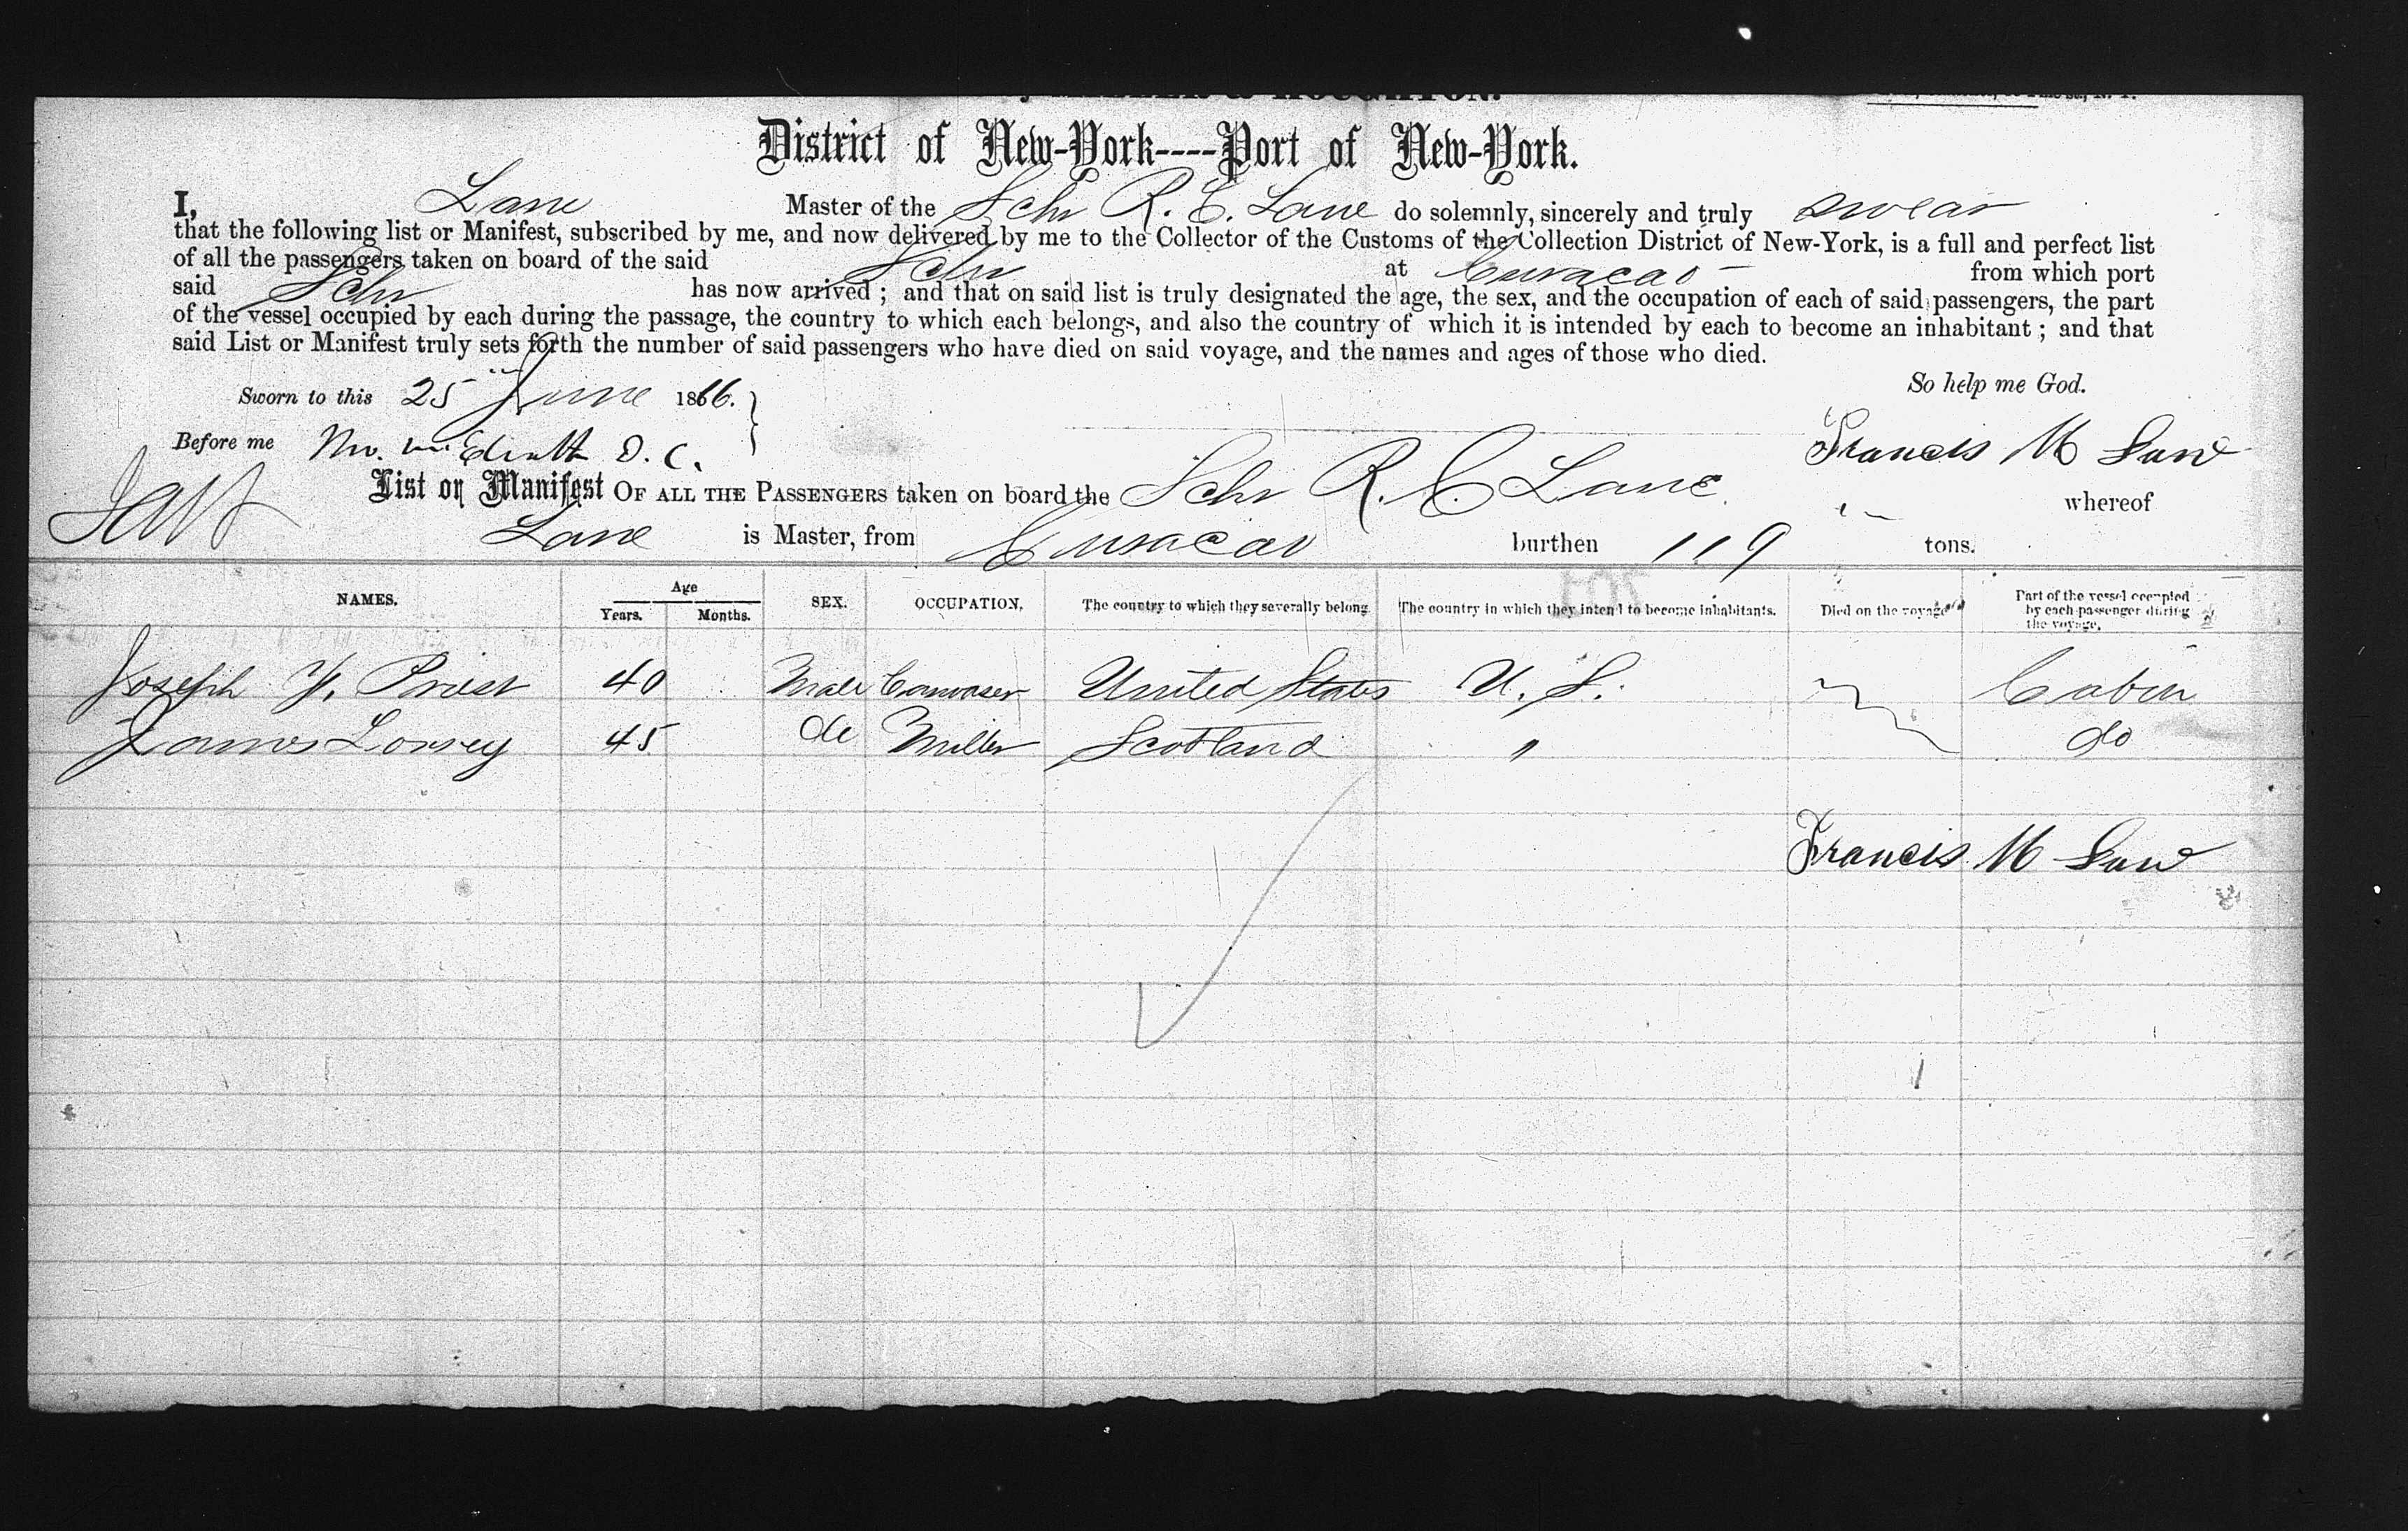 District of New-York----Port of New-York.
I, Lane Master of the Schr R. E. Lane do solemnly, sincerely and truly swear
that the following list or Manifest, subscribed by me, and now delivered by me to the Collector of the Customs of the Collection District of New-York, is a full and perfect list
of all the passengers taken on board of the said Schr at Curacao from which port
said Schr has now arrived ; and that on said list is truly designated the age, the sex, and the occupation of each of said passengers, the part
of the vessel occupied by each during the passage, the country to which each belongs, and also the country of which it is intended by each to become an inhabitant ; and that
said List or Manifest truly sets forth the number of said passengers who have died on said voyage, and the names and ages of those who died.
So help me God.
Sworn to this 25 June 1866.
Before me D. C.
Francis M
List or Manifest OF ALL THE PASSENGERS taken on board the Schr R. E Lane whereof
Lane is Master, from Curacao burthen 119 tons.
NAMES. Age Years. Months. SEX. OCCUPATION, The country to which they severally belong. The country in which they intend to become inhabitants. Died on the voyage Part of the vessel occupied by each passenger during the voyage.
Joseph Y. Priest 40 Male United States U. S. Cabin
James 45 do Miller Scotland " do
Francis M